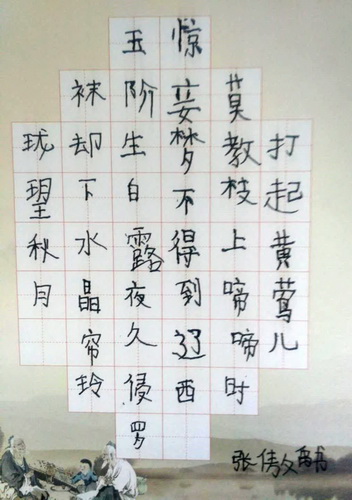 打起黄莺儿
莫教枝上啼啼时
惊妾梦不得到辽西
玉阶生白露夜久侵罗
袜却下水晶帘玲
珑望秋月
张傲书